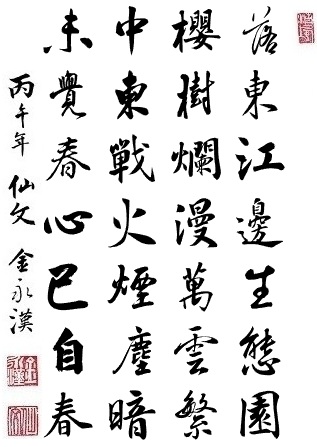 落東江邊生態園
櫻樹爛漫萬雲繁
中東戰火煙塵暗
未覺春心已自春
丙午年 仙文 金永漢